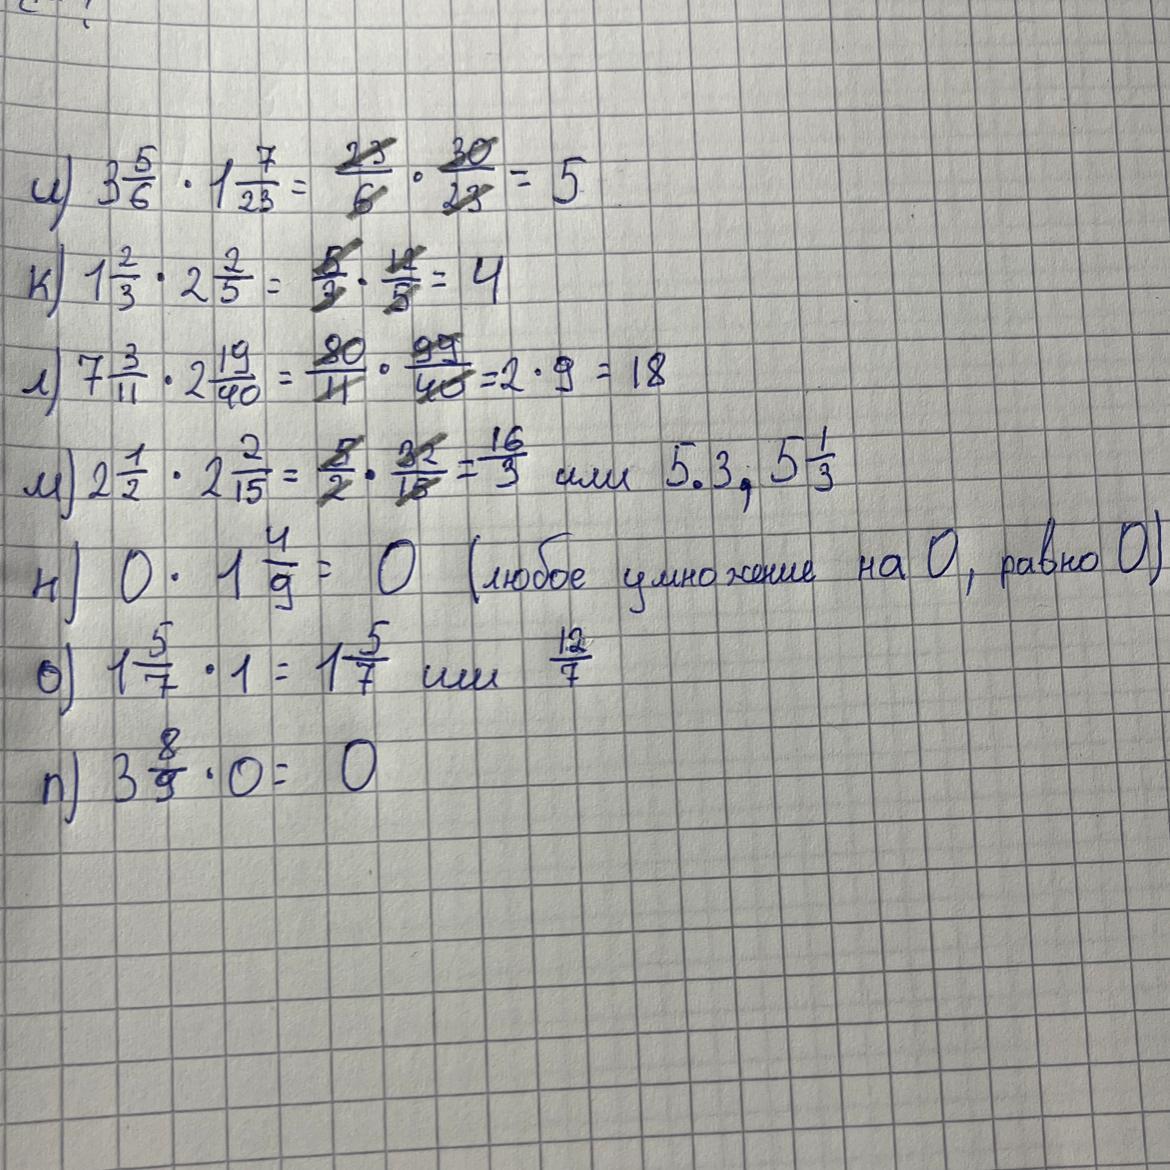 и) 3 5/6 · 1 7/23 = 23/6 · 30/23 = 5
к) 1 2/3 · 2 2/5 = 5/3 · 12/5 = 4
л) 7 3/11 · 2 19/40 = 80/11 · 99/40 = 2 · 9 = 18
м) 2 1/2 · 2 2/15 = 5/2 · 32/15 = 16/3 или 5.3, 5 1/3
н) 0 · 1 4/9 = 0 (любое умножение на 0, равно 0)
о) 1 5/7 · 1 = 1 5/7 или 12/7
п) 3 8/9 · 0 = 0